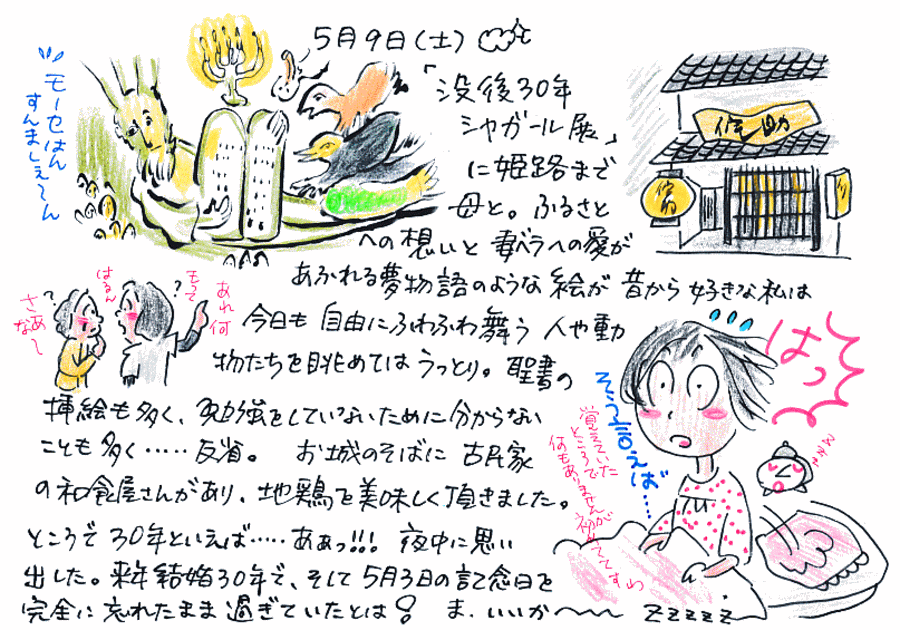 5月9日(土)
「没後30年
シャガール展」
に姫路まで
母と。ふるさと
への想いと妻ベラへの愛が
あふれる夢物語のような絵が昔から好きな私は
今日も自由にふわふわ舞う人や動
物たちを眺めてはうっとり。聖書の
挿絵も多く、勉強をしていないために分からない
ことも多く……反省。お城のそばに古民家
の和食屋さんがあり、地鶏を美味しく頂きました。
ところで30年といえば……ああっ!!!夜中に思い
出した。来年結婚30年で、そして5月3日の記念日を
完全に忘れたまま過ぎていたとは!ま、いいか〜〜 zzzzz
モーセはん
すんましぇ〜ん
あれ何
もって
はるん
?
さあ
な〜
?
佐助
はっ
そう言えば…
覚えていた
ところで
何もありませんが
初めてですわ
zzz